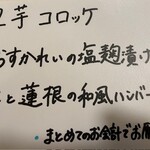 芋 コロッケ
すかれいの塩麹漬け
と蓮根の和風ハンバー
・まとめてのお会計でお願